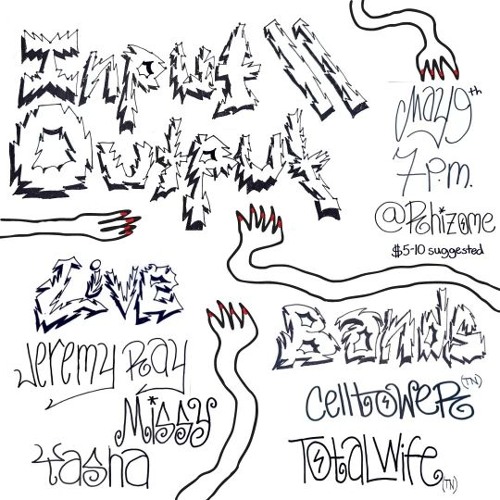 Input //
Output
May 9th
7 p.m.
@Rhizome
$5-10 suggested
Live
Jeremy Ray
Missy
Tasha
Bands
Celltower (TN)
Total Wife (TN)